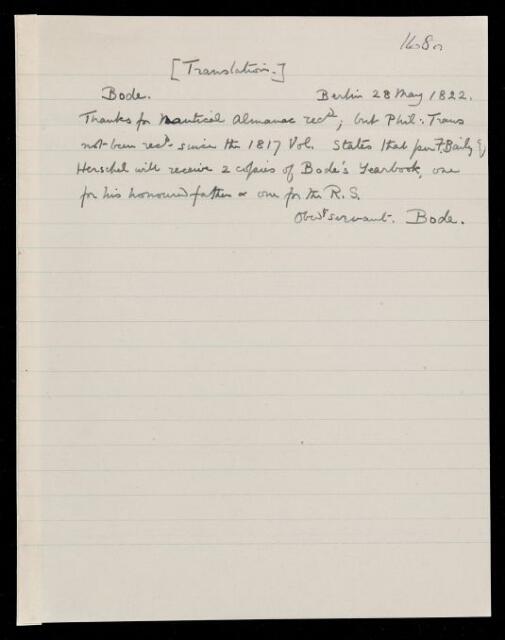 [Translation.]
Bode. Berlin 28 May 1822.
Thanks for Nautical Almanac recd; but Phil. Trans
not been recd since the 1817 Vol. States that per F. Baily
Herschel will receive 2 copies of Bode's Yearbook, one
for his honoured father & one for the R.S.
Obedt servant. Bode.